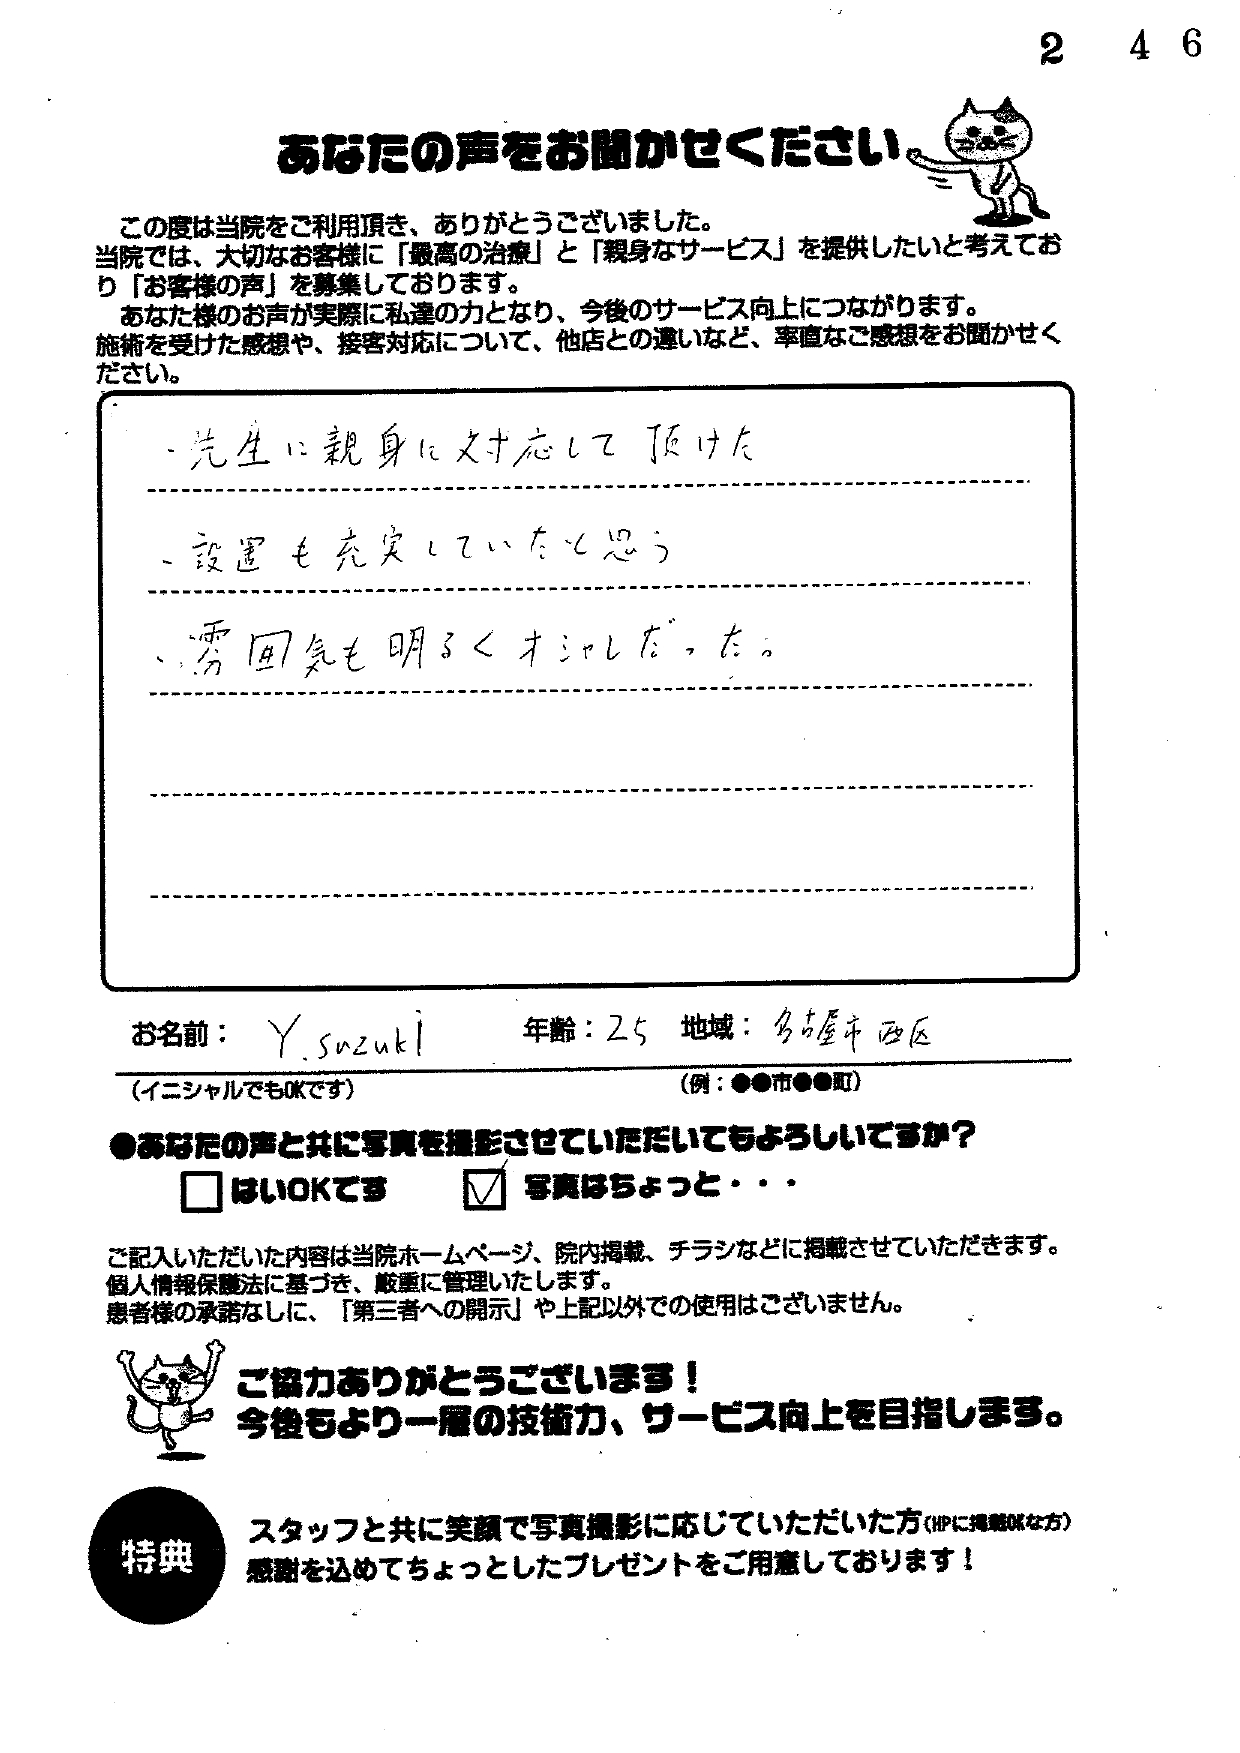 2 4 6
あなたの声をお聞かせください
この度は当院をご利用頂き、ありがとうございました。
当院では、大切なお客様に「最高の治療」と「親身なサービス」を提供したいと考えてお
り「お客様の声」を募集しております。
あなた様のお声が実際に私達の力となり、今後のサービス向上につながります。
施術を受けた感想や、接客対応について、他店との違いなど、率直なご感想をお聞かせく
ださい。
・先生に親身に対応して頂けた
・設置も充実していたと思う
・雰囲気も明るくオシャレだった。
お名前： Y.suzuki 年齢：25 地域：名古屋市西区
（イニシャルでもOKです） （例：●●市●●町）
●あなたの声と共に写真を撮影させていただいてもよろしいですか？
□はいOKです ☑写真はちょっと・・・
ご記入いただいた内容は当院ホームページ、院内掲載、チラシなどに掲載させていただきます。
個人情報保護法に基づき、厳重に管理いたします。
患者様の承諾なしに、「第三者への開示」や上記以外での使用はございません。
ご協力ありがとうございます！
今後もより一層の技術力、サービス向上を目指します。
特典
スタッフと共に笑顔で写真撮影に応じていただいた方（HPに掲載OKな方）
感謝を込めてちょっとしたプレゼントをご用意しております！